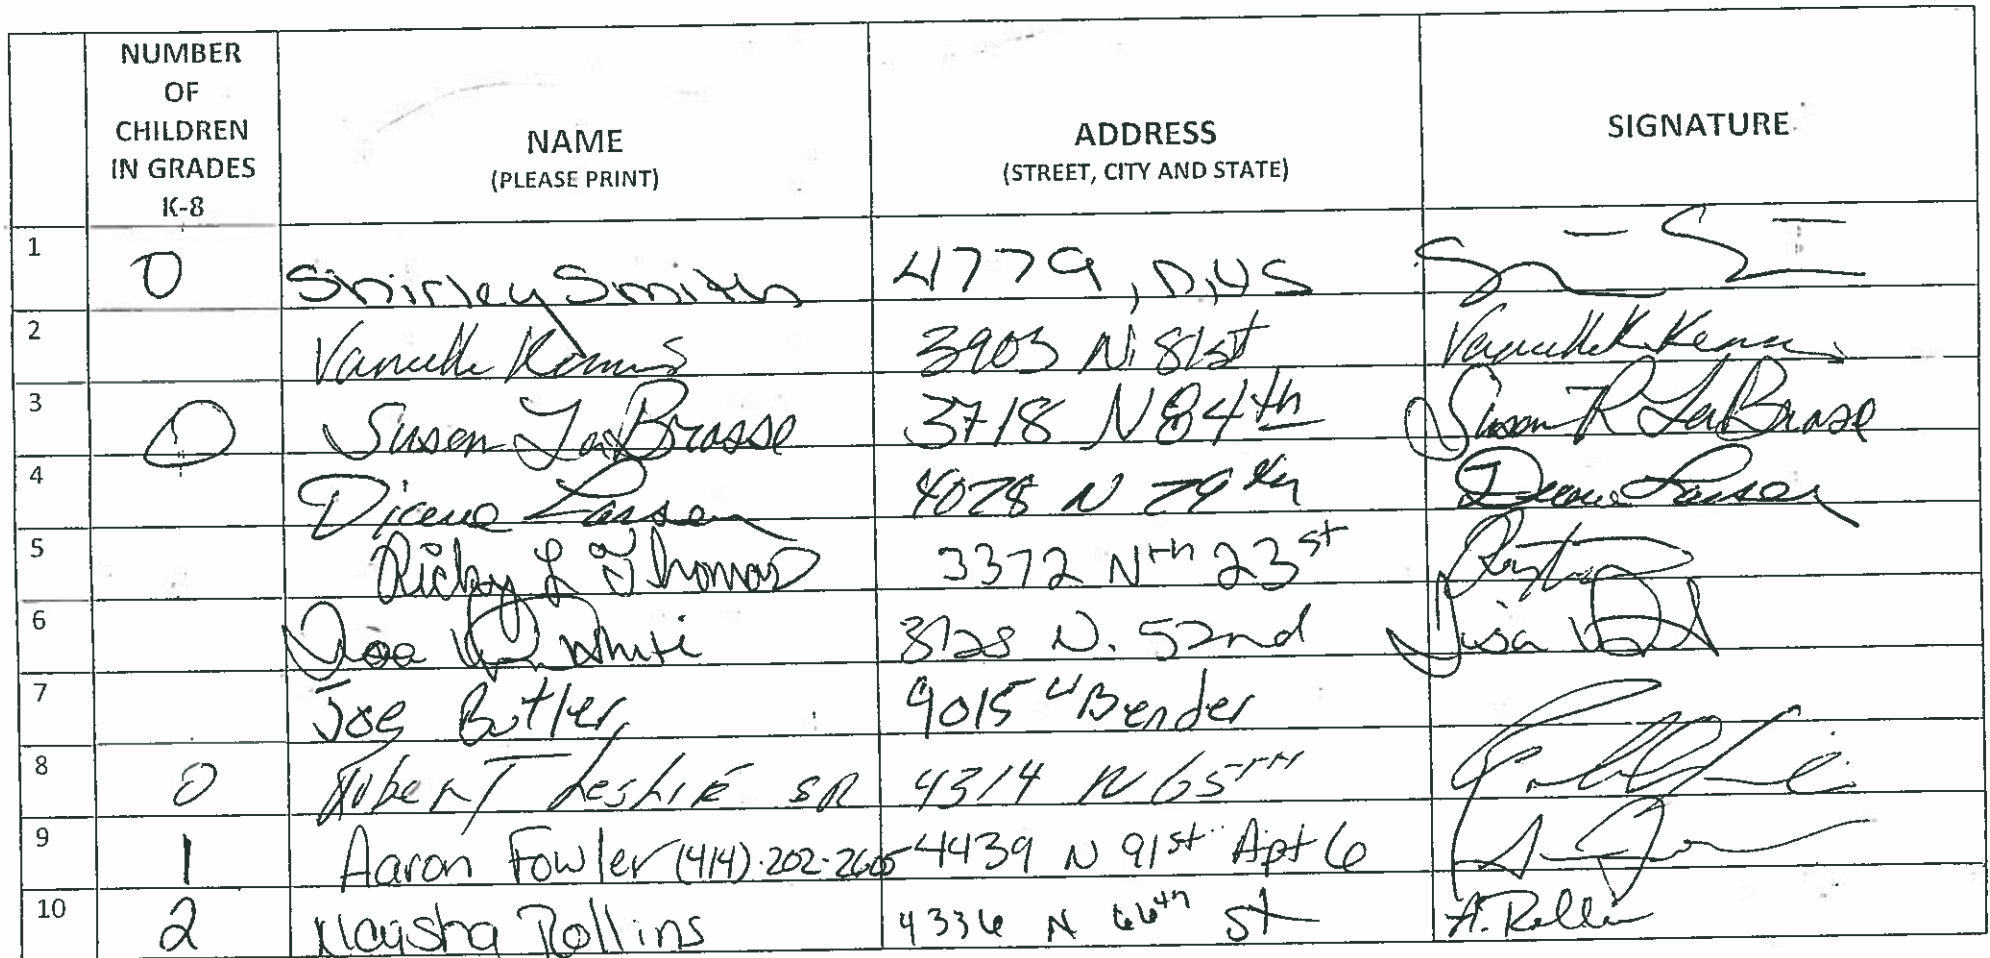 NUMBER
OF
CHILDREN
IN GRADES
K-8
NAME
(PLEASE PRINT)
ADDRESS
(STREET, CITY AND STATE)
SIGNATURE
1 0 Shirley Smith 4779
2 3903 N. 81st
3 0 Susan LaBrosse 3718 N 84th Susan R LaBrosse
4 Diane Larsen N 79th Diane Larsen
5 Ricky L Thomas 3372 Nth 23st
6 N. 52nd
7 Joe Butler 9015 W Bender
8 0 Robert Leslie SR 4314 N 65TH
9 1 Aaron Fowler (414)-202-2605 4439 N 91st Apt 6
10 2 Rollins 4336 N 66th St A. Rollin